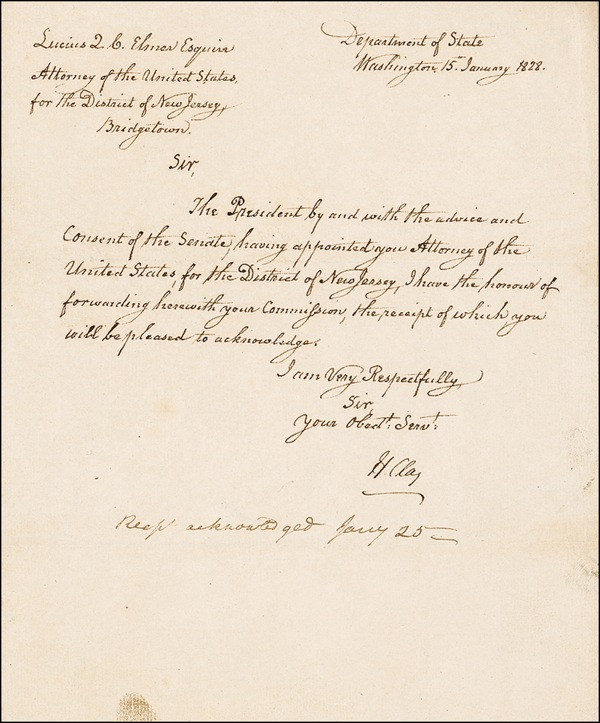 Lucius Q. C. Elmer Esquire
Attorney of the United States,
for the District of New Jersey,
Bridgetown.
Department of State
Washington, 15th January 1828.
Sir,
The President by and with the advice and
Consent of the Senate, having appointed you Attorney of the
United States, for the District of New Jersey, I have the honour of
forwarding herewith your Commission, the receipt of which you
will be pleased to acknowledge.
I am Very Respectfully,
Sir,
Your Obedt. Servt.
H Clay
Recpt acknowledged Jany 25